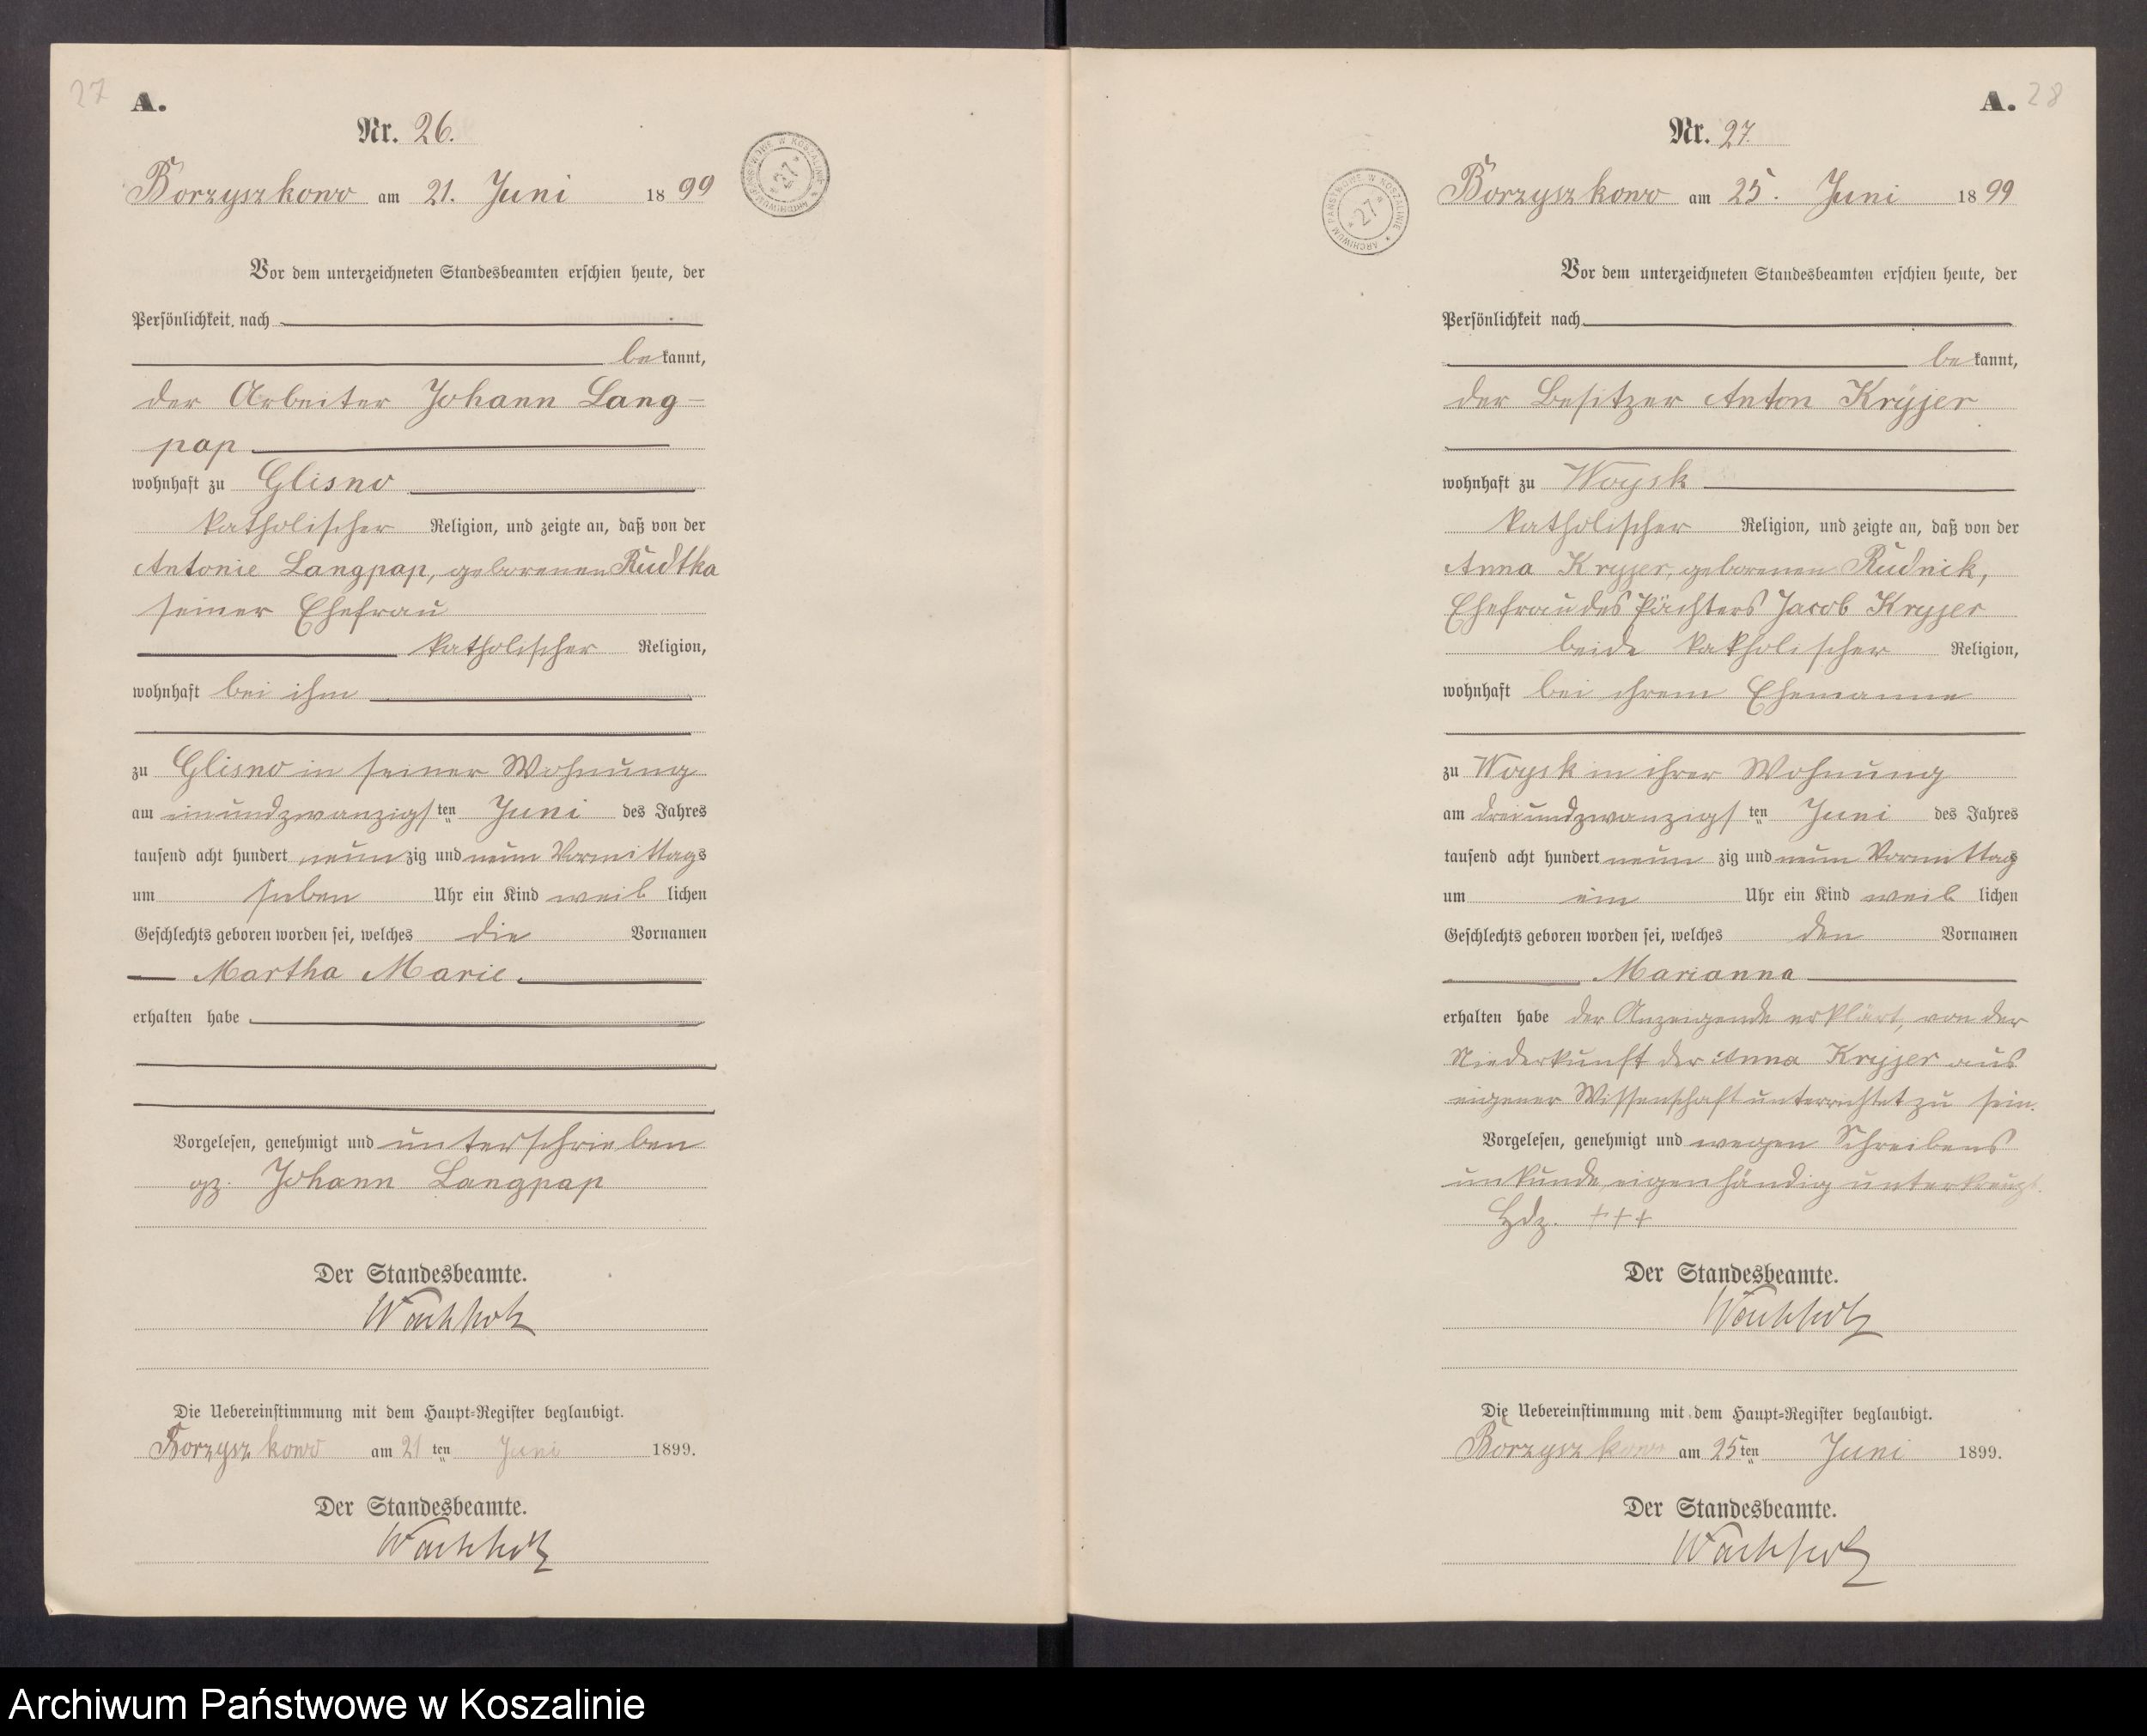 27
A.
Nr. 26.
Borzyszkowo am 21. Juni 1899
ARCHIWUM PAŃSTWOWE W KOSZALINIE * 27 *
Vor dem unterzeichneten Standesbeamten erschien heute, der
Persönlichkeit nach
bekannt,
der Arbeiter Johann Lang-
pap
wohnhaft zu Glisno
katholischer Religion, und zeigte an, daß von der
Antonie Langpap, geborenen Rudtka
seiner Ehefrau
katholischer Religion,
wohnhaft bei ihm
zu Glisno in seiner Wohnung
am einundzwanzigsten Juni des Jahres
tausend acht hundert neunzig und neun Vormittags
um sieben Uhr ein Kind weiblichen
Geschlechts geboren worden sei, welches die Vornamen
Martha Marie
erhalten habe
Vorgelesen, genehmigt und unterschrieben
gz. Johann Langpap
Der Standesbeamte.
Wachholz
Die Uebereinstimmung mit dem Haupt-Register beglaubigt.
Borzyszkowo am 21ten Juni 1899.
Der Standesbeamte.
Wachholz
A. 28
Nr. 27.
Borzyszkowo am 25. Juni 1899
ARCHIWUM PAŃSTWOWE W KOSZALINIE * 27 *
Vor dem unterzeichneten Standesbeamten erschien heute, der
Persönlichkeit nach
bekannt,
der Besitzer Anton Kryjer
wohnhaft zu Woysk
katholischer Religion, und zeigte an, daß von der
Anna Kryjer, geborenen Rudnik,
Ehefrau des Pächters Jacob Kryjer
beide katholischer Religion,
wohnhaft bei ihrem Ehemanne
zu Woysk in ihrer Wohnung
am dreiundzwanzigsten Juni des Jahres
tausend acht hundert neunzig und neun Vormittags
um ein Uhr ein Kind weiblichen
Geschlechts geboren worden sei, welches den Vornamen
Marianna
erhalten habe der Anzeigende erklärt, von der
Niederkunft der Anna Kryjer aus
eigener Wissenschaft unterrichtet zu sein.
Vorgelesen, genehmigt und wegen Schreibens
unkunde eigenhändig unterkreuzt.
Hdz. +++
Der Standesbeamte.
Wachholz
Die Uebereinstimmung mit dem Haupt-Register beglaubigt.
Borzyszkowo am 25ten Juni 1899.
Der Standesbeamte.
Wachholz
Archiwum Państwowe w Koszalinie